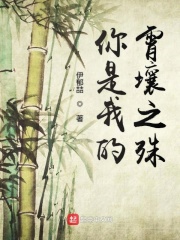 霄壤之殊
你是我的
伊郁喆 ◎ 著